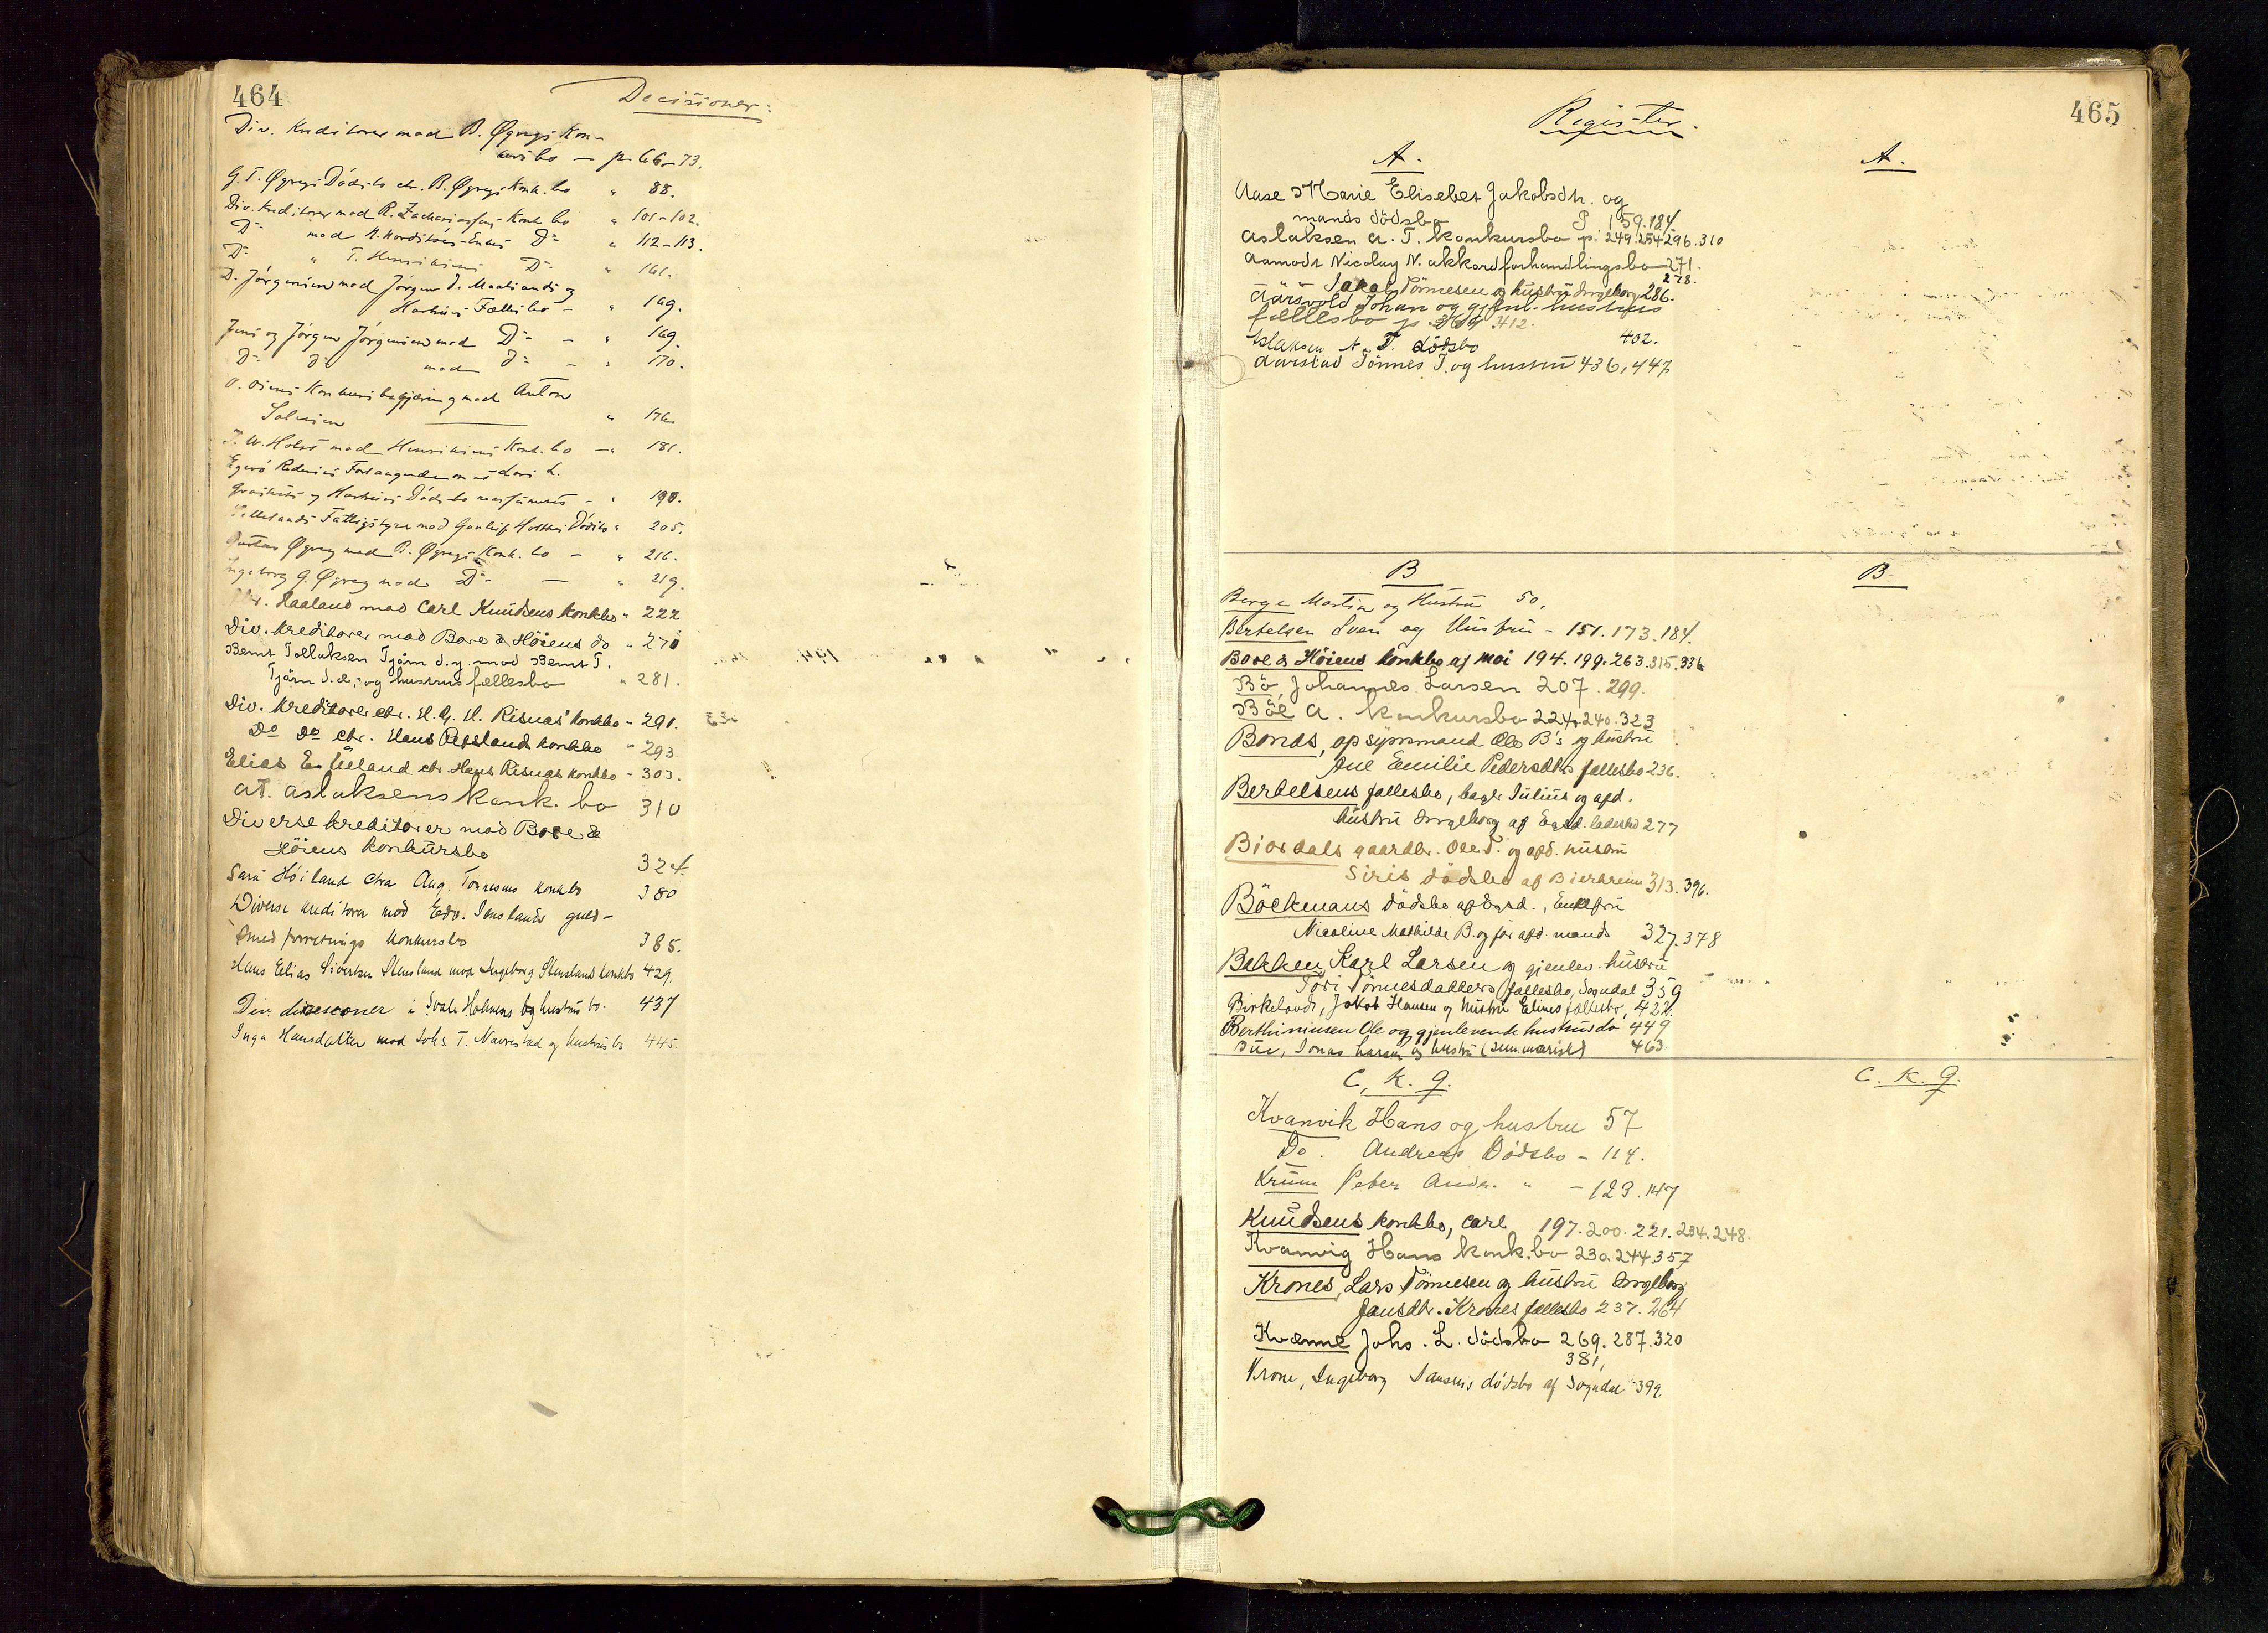 464
Decisioner:
Div. Kreditorer mod B. Øgreys Kon-
kursbo — p 66-73.
G. T. Øgreys Dödsbo ctr. B. Øgreys Konk. bo " 88.
Div. Kreditorer mod R. Zachariassens Konk bo " 101-102.
D= mod D= " 112-113.
D= " T. Henriksens D= " 161.
D. Jörgensen mod Jörgen J. Maalands og
Hustrues Fællesbo - " 169.
Jens og Jörgen Jörgensen mod D= - " 169.
D= D= mod D= - " 170.
O. Konkursbegjæring mod Anton
Salvesen " 176
T. W. Holst mod Henriksens Konk. bo — " 181.
Egerö Rederies
og Hustrues Dödsbo - " 190.
Fattigstyre mod Dödsbo " 205.
Gustav Øgrey mod B. Øgreys Konk. bo — " 216.
Ingeborg G. Øgrey mod D= — " 219.
Haaland mod Carl Knudsens konkbo " 222
Div. kreditorer mod Bore & Höiens do " 270
Bernt Tollaksen Tjörn d.y. mod Bernt T.
Tjörn d.æ. og hustrus fællesbo " 281.
Div. kreditorer ctr. H. G. H. Risnæs' konkbo " 291.
Do Do ctr. Hans Refslands konkbo " 293
Elias E. Ueland ctr. Hans Risnæs konkbo - 303.
A.T. Aslaksens konk. bo 310
Diverse kreditorer mod Bore &
Höiens konkursbo 324
Sara Höiland ctra Aug. Tönnesens konkbo 380
Diverse kreditorer mod Edv. Jenslands guld-
smedforretnings konkursbo 385.
Hans Elias Sivertsen Stensland mod Ingeborg Stenslands konkbo 429.
Div. decisioner i Svale Holmens og hustrus bo. 437
Inga Hansdatter mod Johs T. Navrestad og hustrus bo 445.
465
Register.
A. A.
Aase Marie Elisebet Jakobsdtr. og
mands dödsbo P 159.184.
Aslaksen A. T. konkursbo p. 249.254.296.310
Aamodt Nicolay N. akkordforhandlingsbo 271.
278.
Jakob Tönnesen og hustru Ingeborg 286.
Aarsvold Johan og gjenl. hustrus
fællesbo p. 369 412.
Aslaksen A. T. dödsbo 402.
Aarstad Tönnes T. og hustru 436, 447
B B.
Berge Martin og Hustru 50.
Bertelsen Sven og Hustru - 151.173.184.
Bore & Höiens konkbo af Moi 194.199.263.315.336
Bö, Johannes Larsen 207.299.
Böe A. konkursbo 224.240.323
Bonds, opsynsmand Ole B's og hustru
Ane Emilie Pedersdtrs fællesbo 236.
Bertelsens fællesbo, bager Julius og afd.
hustru Ingeborg af Egsd. ladested 277
Bjordals gaardbr. Ole T. og afd. hustru
Siris dödsbo af Bjerkreim 313.396.
Böckmans dödsbo af Egsd., Enkefru
Nicoline Mathilde B. og för afd. mands 327.378
Bakken, Karl Larsen og gjenlev. hustru
Tori Tönnesdatters fællesbo, Sogndal 359
Birkeland, Jakob Hansen og hustru Elines fællesbo, 422.
Berthiniusen Ole og gjenlevende hustrus do 449
Bue, Jonas Larsen og hustru (summarisk) 463.
C, K. Q. C. K. Q.
Kvanvik Hans og hustru 57
Do. Andreas Dödsbo - 114.
Krüm Peter Andr. " - 129.147
Knudsens konkbo, Carl 197.200.221.234.248.
Kvanvig Hans konk.bo 230.244.357
Krones, Lars Tönnesen og hustru Ingeborg
Jansdtr. Krones fællesbo 237.264
Kvænne Johs. L. dödsbo 269.287.320
381,
Krone, Ingeborg Jansens dödsbo af Sogndal 399.